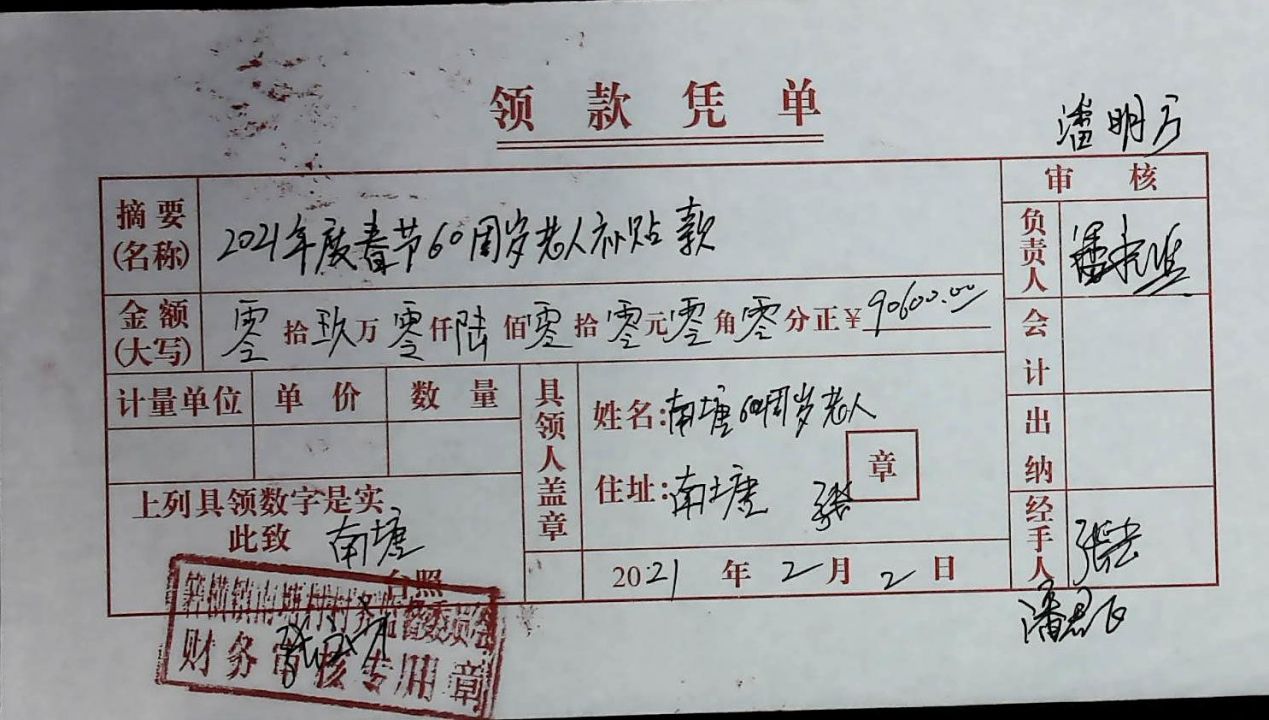 领款凭单
潘明方
审核
摘要(名称) 2021年度春节60周岁老人补贴款
负责人
金额(大写) 零拾玖万零仟陆佰零拾零元零角零分正¥90600.00
会计
计量单位 单价 数量
具领人盖章
姓名:南塘60周岁老人
出纳
住址:南塘
章
上列具领数字是实
此致 南塘
台照
经手人
2021年2月2日
箬横镇南塘村村务监督委员会
财务审核专用章